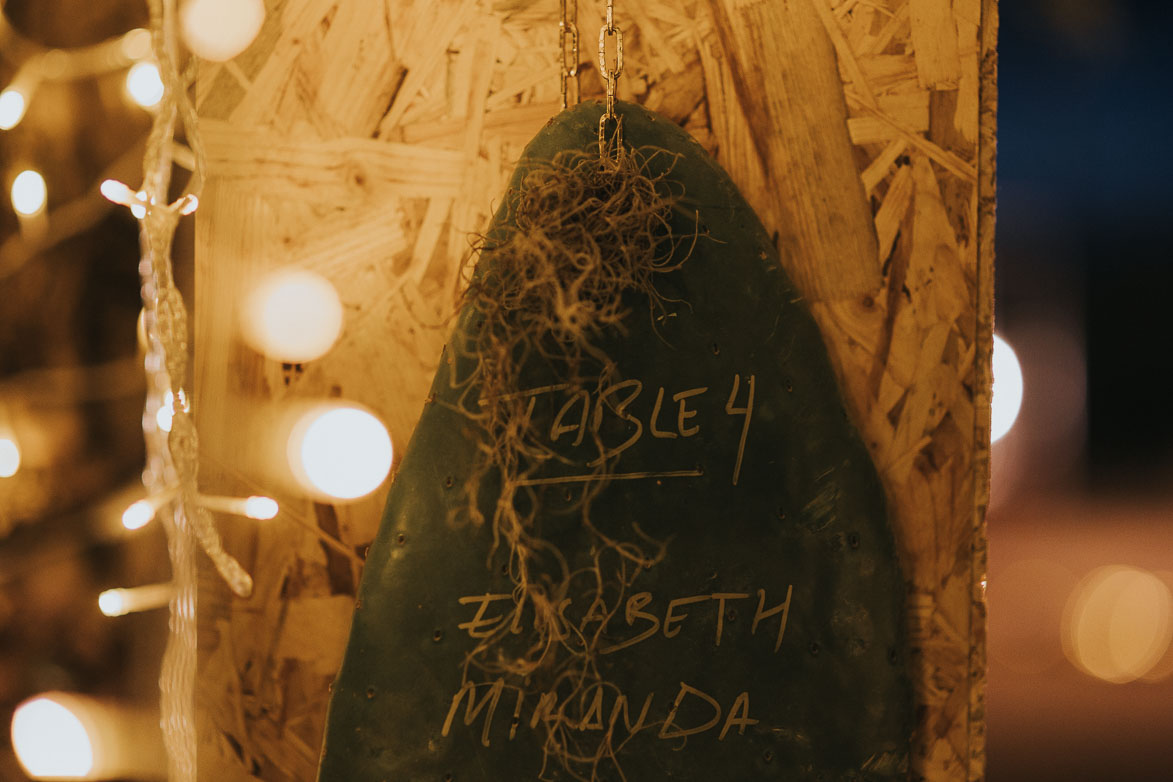 TABLE 4
ELISABETH
MIRANDA